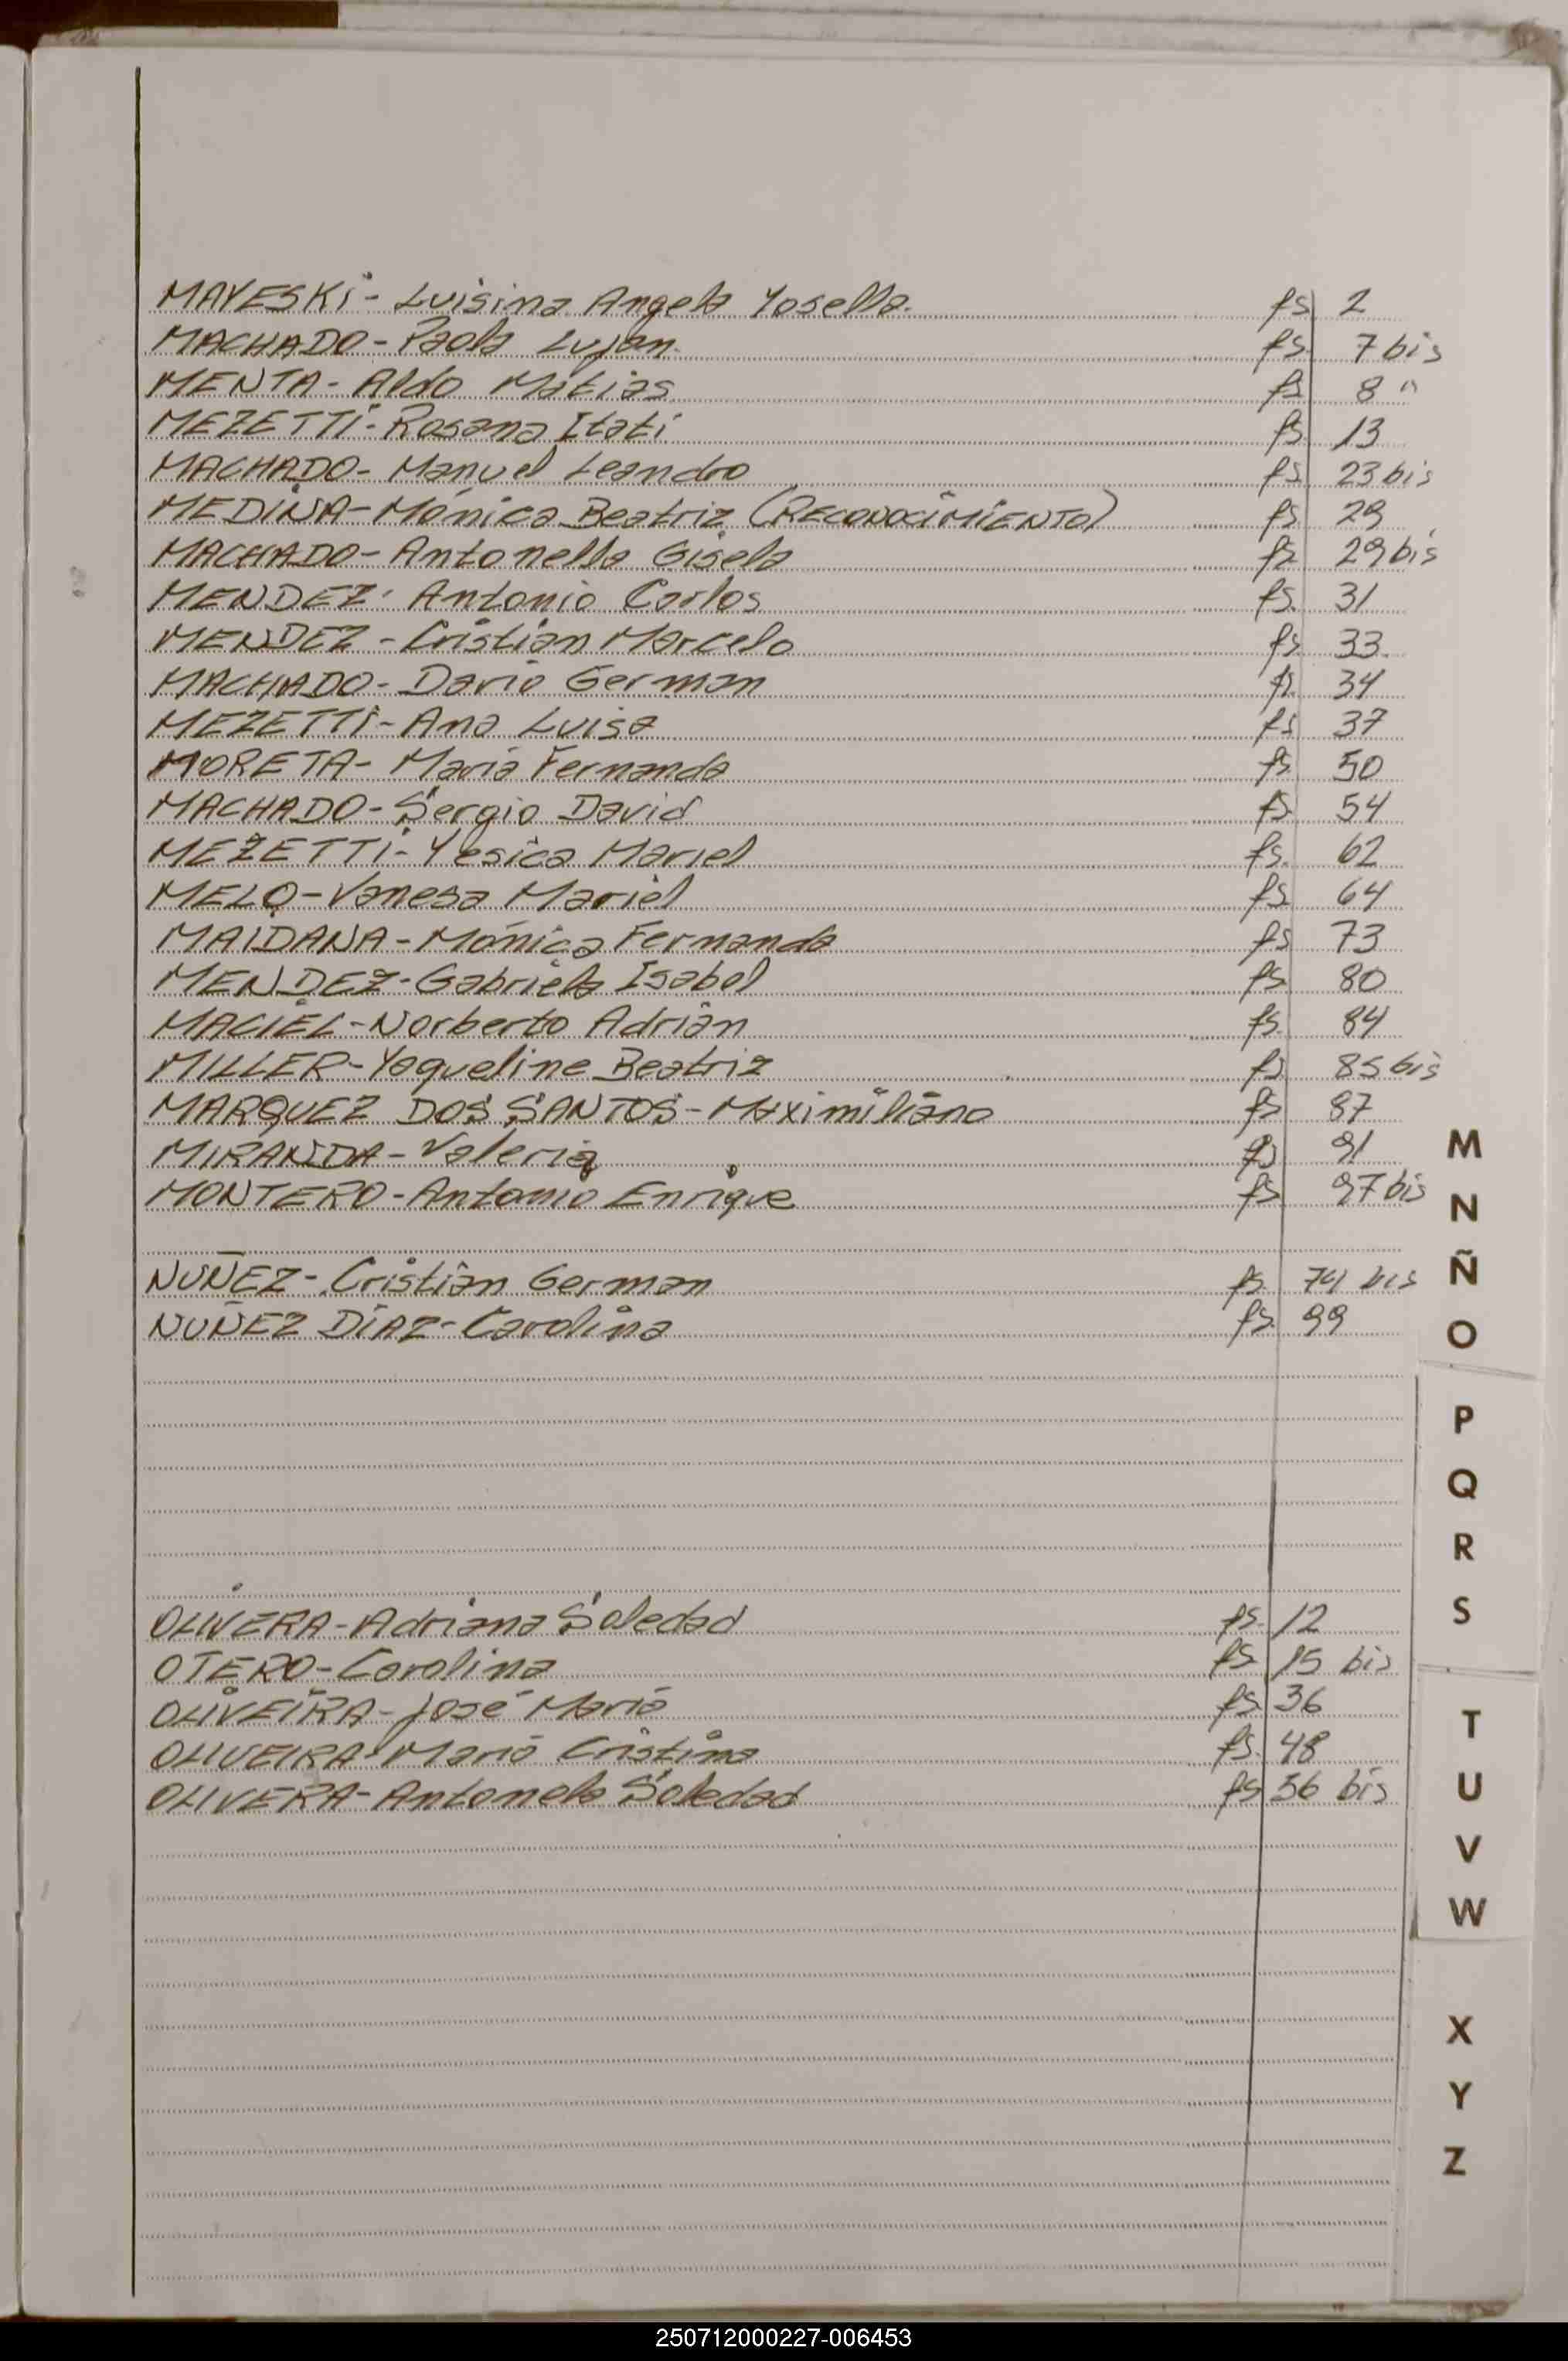 MAYESKI - Luisina Angela Yosella. fs 2
MACHADO - Paola Lujan. fs. 7 bis
MENTA - Aldo Matias. fs 8 "
MEZETTI - Rosana Itati fs 13
MACHADO - Manuel Leandro fs 23 bis
MEDINA - Mónica Beatriz (RECONOCIMIENTO) fs 29
MACHADO - Antonella Gisela fs 29 bis
MENDEZ - Antonio Carlos fs. 31
MENDEZ - Cristian Marcelo fs 33
MACHADO - Dario German fs. 34
MEZETTI - Ana Luisa fs 37
MORETA - Maria Fernanda fs. 50
MACHADO - Sergio David fs. 54
MEZETTI - Yesica Mariel fs. 62
MELO - Vanesa Mariel fs 64
MAIDANA - Mónica Fernanda fs 73
MENDEZ - Gabriela Isabel fs 80
MACIEL - Norberto Adrián fs. 84
MILLER - Yaqueline Beatriz fs 85 bis
MARQUEZ DOS SANTOS - Maximiliano fs 87
MIRANDA - Valeria fs 91
MONTERO - Antonio Enrique fs 97 bis
NUÑEZ - Cristian German fs. 74 bis
NUÑEZ DIAZ - Carolina fs. 99
OLIVERA - Adriana Soledad fs. 12
OTERO - Carolina fs 15 bis
OLIVEIRA - José Maria fs 36
OLIVEIRA - Maria Cristina fs. 48
OLIVERA - Antonela Soledad fs 56 bis
M
N
Ñ
O
P
Q
R
S
T
U
V
W
X
Y
Z
250712000227-006453